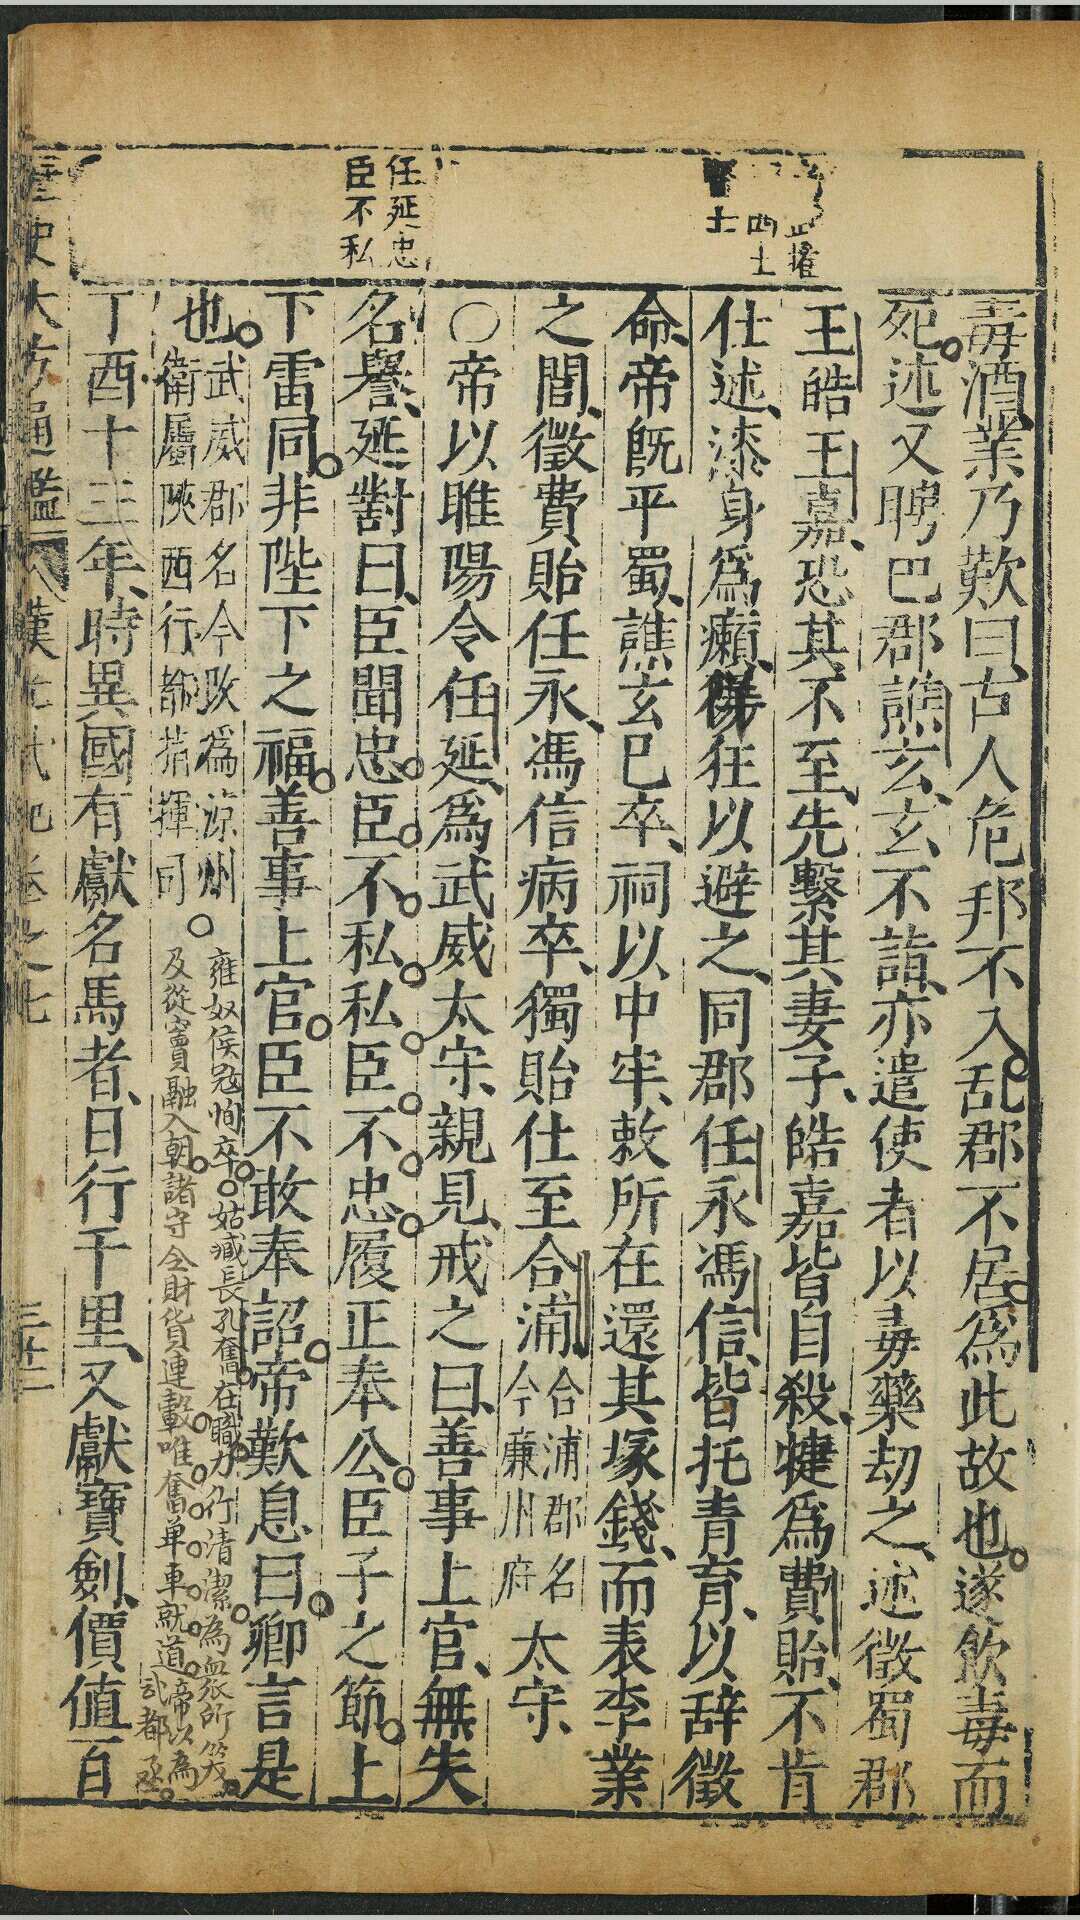 毒酒業乃歎曰古人危邦不入乱郡不居爲此故也遂飲毒而
死述又聘巴郡譙玄玄不詣亦遣使者以毒藥劫之述徵蜀郡
王皓王嘉恐其不至先繫其妻子皓嘉皆自殺犍爲費貽不肯
仕述漆身爲癩佯狂以避之同郡任永馮信皆托青育以辞徵
命帝旣平蜀譙玄已卒祠以中牢敕所在還其塚錢而表李業
之間徵費貽任永馮信病卒獨貽仕至合浦
合浦郡名
今廉州府
太守
〇帝以睢陽令任延爲武威太守親見戒之曰善事上官無失
任延忠
臣不私
名譽延對曰臣聞忠臣不私私臣不忠履正奉公臣子之節上
下雷同非陛下之福善事上官臣不敢奉詔帝歎息曰卿言是
也
武威郡名今改爲涼州
衛屬陝西行都指揮司
雍奴侯冦恂卒姑臧長孔奮在職力行清潔為衆所笑
及從竇融入朝諸守令財貨連轂唯奮单車就道帝以為
武都丞
丁酉十三年時異國有獻名馬者日行千里又獻寶劍價値百
大方通鑑
漢
卷之七